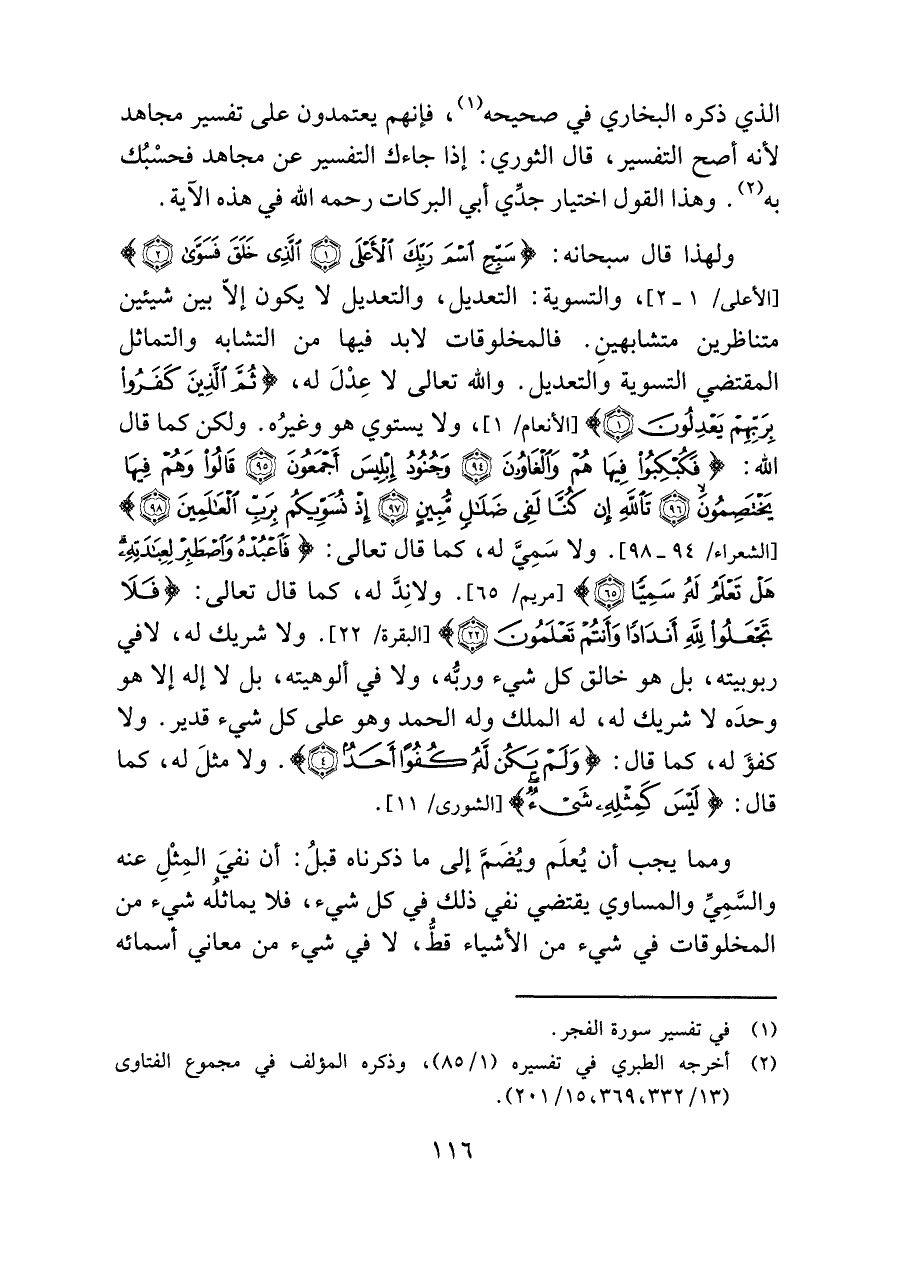 الذي ذكره البخاري في صحيحه(١)، فإنهم يعتمدون على تفسير مجاهد
لأنه أصح التفسير، قال الثوري: إذا جاءك التفسير عن مجاهد فحسْبُك
به(٢). وهذا القول اختيار جدِّي أبي البركات رحمه الله في هذه الآية.
ولهذا قال سبحانه: ﴿سَبِّحِ ٱسْمَ رَبِّكَ ٱلْأَعْلَى ۝١ ٱلَّذِى خَلَقَ فَسَوَّىٰ ۝٢﴾
[الأعلى/ ١ ـ ٢]، والتسوية: التعديل، والتعديل لا يكون إلاّ بين شيئين
متناظرين متشابهينِ. فالمخلوقات لابد فيها من التشابه والتماثل
المقتضي التسوية والتعديل. والله تعالى لا عِدْلَ له، ﴿ثُمَّ ٱلَّذِينَ كَفَرُوا۟
بِرَبِّهِمْ يَعْدِلُونَ ۝١﴾ [الأنعام/ ١]، ولا يستوي هو وغيرُه. ولكن كما قال
الله: ﴿فَكُبْكِبُوا۟ فِيهَا هُمْ وَٱلْغَاوُۥنَ ۝٩٤ وَجُنُودُ إِبْلِيسَ أَجْمَعُونَ ۝٩٥ قَالُوا۟ وَهُمْ فِيهَا
يَخْتَصِمُونَ ۝٩٦ تَٱللَّهِ إِن كُنَّا لَفِى ضَلَٰلٍ مُّبِينٍ ۝٩٧ إِذْ نُسَوِّيكُم بِرَبِّ ٱلْعَٰلَمِينَ ۝٩٨﴾
[الشعراء/ ٩٤ ـ ٩٨]. ولا سَمِيَّ له، كما قال تعالى: ﴿فَٱعْبُدْهُ وَٱصْطَبِرْ لِعِبَٰدَتِهِۦ ۚ
هَلْ تَعْلَمُ لَهُۥ سَمِيًّا ۝٦٥﴾ [مريم/ ٦٥]. ولانِدَّ له، كما قال تعالى: ﴿فَلَا
تَجْعَلُوا۟ لِلَّهِ أَندَادًا وَأَنتُمْ تَعْلَمُونَ ۝٢٢﴾ [البقرة/ ٢٢]. ولا شريك له، لافي
ربوبيته، بل هو خالق كل شيء وربُّه، ولا في ألوهيته، بل لا إله إلا هو
وحدَه لا شريك له، له الملك وله الحمد وهو على كل شيء قدير. ولا
كفؤَ له، كما قال: ﴿وَلَمْ يَكُن لَّهُۥ كُفُوًا أَحَدٌۢ ۝٤﴾. ولا مثلَ له، كما
قال: ﴿لَيْسَ كَمِثْلِهِۦ شَىْءٌ ۖ﴾ [الشورى/ ١١].
ومما يجب أن يُعلَم ويُضَمَّ إلى ما ذكرناه قبلُ: أن نفيَ المِثْلِ عنه
والسَّمِيِّ والمساوي يقتضي نفي ذلك في كل شيء، فلا يماثلُه شيء من
المخلوقات في شيء من الأشياء قطُّ، لا في شيء من معاني أسمائه
(١) في تفسير سورة الفجر.
(٢) أخرجه الطبري في تفسيره (٨٥/١)، وذكره المؤلف في مجموع الفتاوى
(٢٠١/١٥،٣٦٩،٣٣٢/١٣).
١١٦